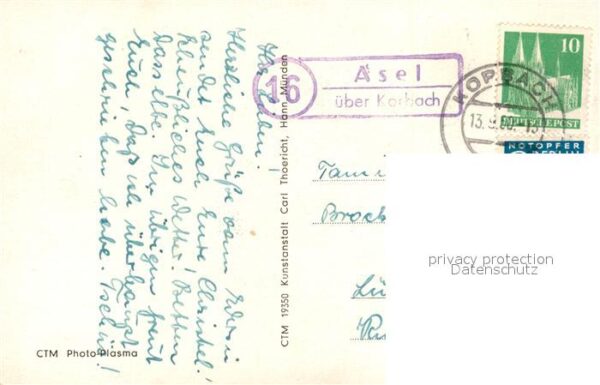 Ihr Lieben!
Herzliche Grüße vom Edersee
sendet Euch Eure Christel.
Scheußliches Wetter! Betten
Dasselbe. Im übrigen freut
Euch, daß ich überhaupt
geschrieben habe. Tschüß!
16
Asel
über Korbach
KORBACH
13.9.
10
DEUTSCHE POST
NOTOPFER
BERLIN
CTM 19350 Kunstanstalt Carl Thoericht, Hann. Münden
CTM Photo-Plasma
privacy protection
Datenschutz